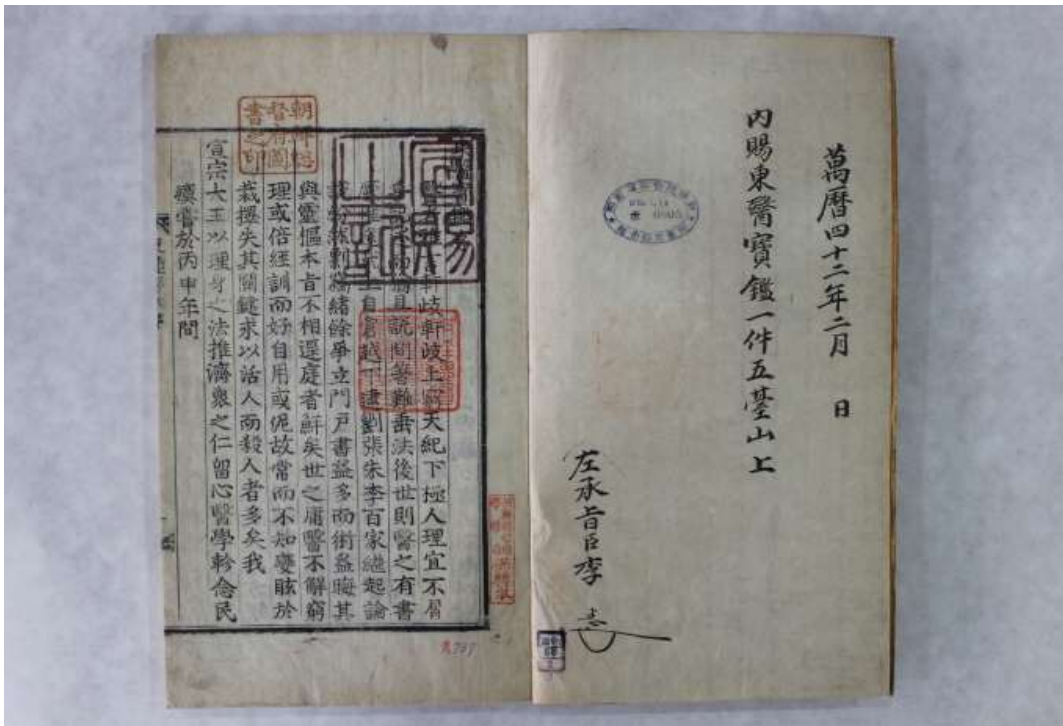 萬曆四十二年二月 日
內賜東醫寶鑑一件五臺山上
左承旨臣李
宣賜之記
朝鮮總督府圖書之印
軒岐軒岐上窮天紀下極人理宜不屑
且說問著難垂法後世則醫之有書
上自倉越下逮劉張朱李百家繼起論
剽竊緒餘爭立門戶書益多而術益晦其
與靈樞本旨不相逕庭者鮮矣世之庸醫不解窮
理或倍經訓而好自用或泥故常而不知變眩於
裁擇失其關鍵求以活人而殺人者多矣我
宣宗大王以理身之法推濟衆之仁留心醫學軫念民
瘼嘗於丙申年間